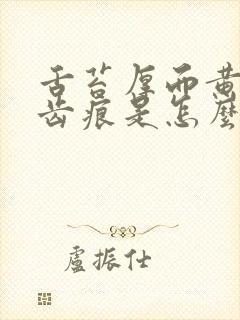 舌苔厚而黄
齿痕是怎麽
盧振仕